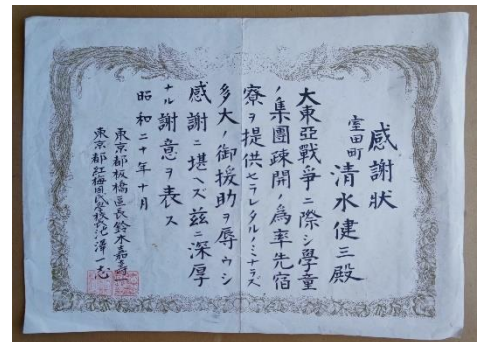 感謝狀
室田町 清水健三殿
大東亞戰爭ニ際シ學童
ノ集團疎開ノ爲率先宿
寮ヲ提供セラレタルノミナラズ
多大ノ御援助ヲ辱ウシ
感謝ニ堪ヘズ茲ニ深厚
ナル謝意ヲ表ス
昭和二十年十月
東京都板橋區長鈴木嘉壽
東京都紅梅國民學校長 澤一